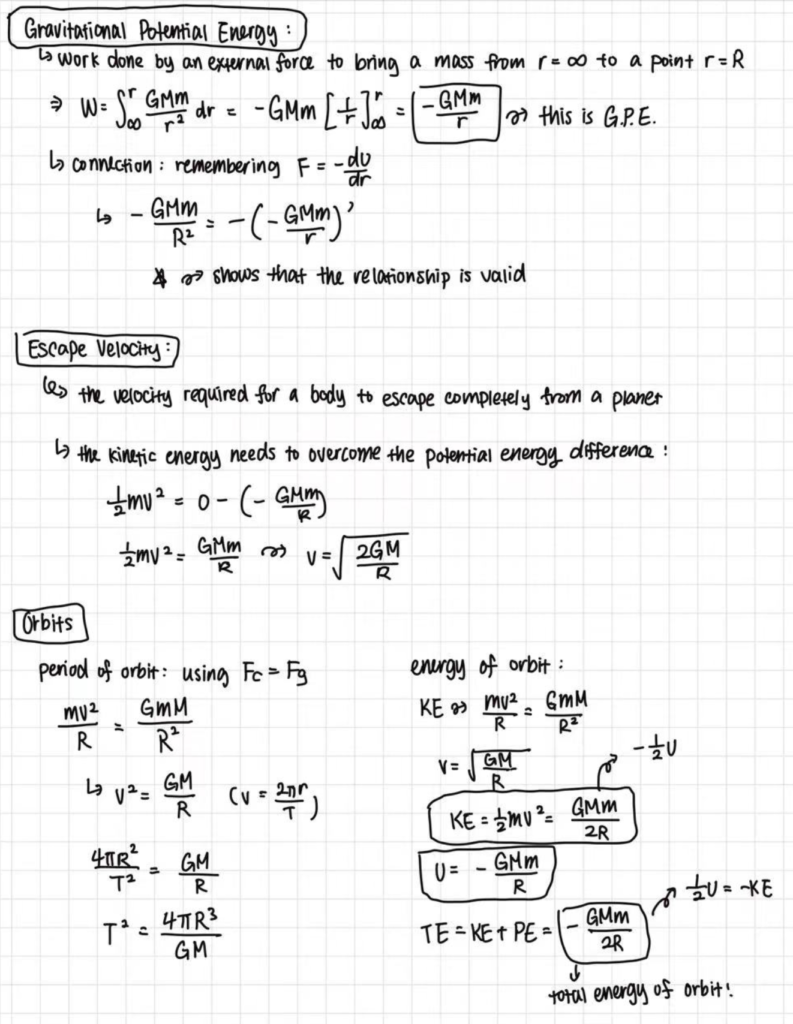 Gravitational Potential Energy :
↳ work done by an external force to bring a mass from r = ∞ to a point r = R
⇒ W = ∫_∞^r GMm/r² dr = -GMm [1/r]_∞^r = -GMm/r ↝ this is G.P.E.
↳ connection : remembering F = -dU/dr
↳ - GMm/R² = - (- GMm/r)'
↝ shows that the relationship is valid
Escape Velocity :
↳ the velocity required for a body to escape completely from a planet
↳ the kinetic energy needs to overcome the potential energy difference :
½mv² = 0 - (- GMm/R)
½mv² = GMm/R ↝ v = √(2GM/R)
Orbits
period of orbit: using Fc = Fg
mv²/R = GmM/R²
↳ v² = GM/R (v = 2πr/T)
4πR²/T² = GM/R
T² = 4πR³/GM
energy of orbit :
KE ↝ mv²/R = GmM/R²
v = √(GM/R)
→ -½U
KE = ½mv² = GMm/2R
U = - GMm/R
→ ½U = -KE
TE = KE + PE = - GMm/2R
↓
total energy of orbit!